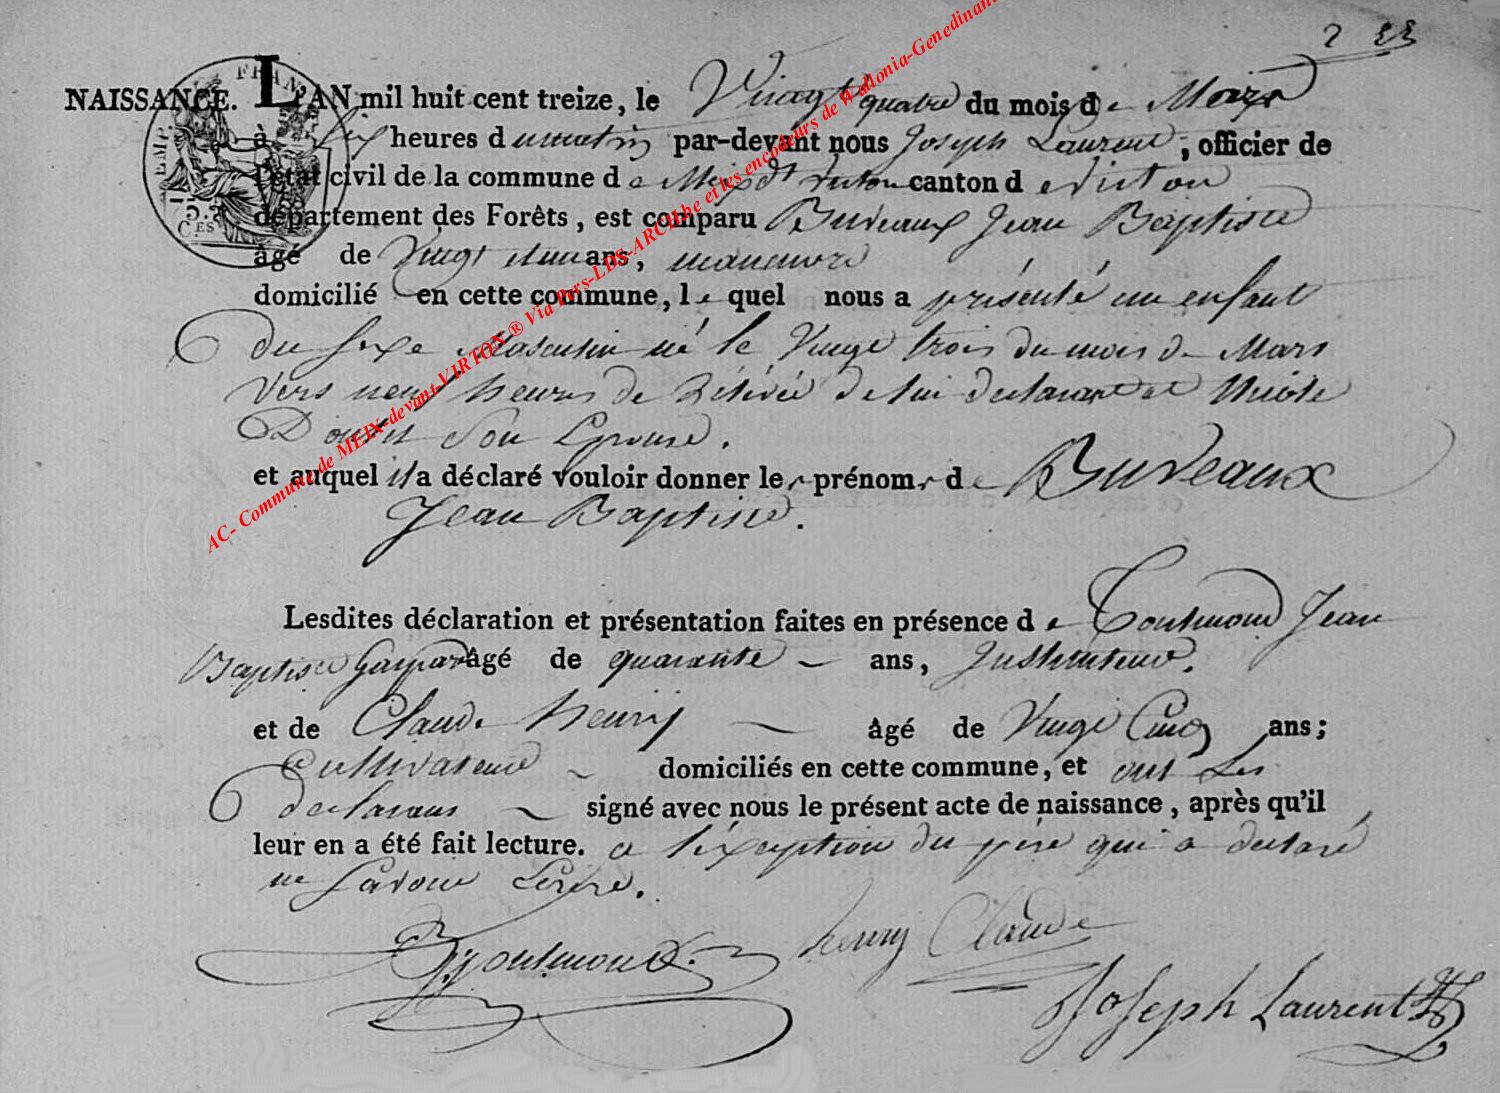 2 23
NAISSANCE. L'AN mil huit cent treize, le Vingt quatre du mois de Mars
à Six heures du matin par-devant nous Joseph Laurent, officier de
l'état civil de la commune de Meix dt virton canton de virton
département des Forêts, est comparu Buveaux Jean Baptiste
âgé de Vingt et un ans, manœuvre
domicilié en cette commune, lequel nous a présenté un enfant
du sexe Masculin né le Vingt trois du mois de Mars
vers neuf heures de Rélévée de lui declarant et Nicole
son Epouse.
et auquel il a déclaré vouloir donner les prénoms de Buveaux
Jean Baptiste.
Lesdites déclaration et présentation faites en présence de Jean
Baptiste Gaspard âgé de quarante ans, Instituteur.
et de Claude henry âgé de Vingt Cinq ans;
Cultivateur domiciliés en cette commune, et ont les
declarans signé avec nous le présent acte de naissance, après qu'il
leur en a été fait lecture. a l'éxception du père qui a declaré
ne Savoir Ecrire.
henry Claude
Joseph Laurent
EMP. FRAN.
75.
CES
AC- Commune de MEIX-devant-VIRTON® Via Pers-LDS-ARCHbe et les encodeurs de Wallonia-Genedinant